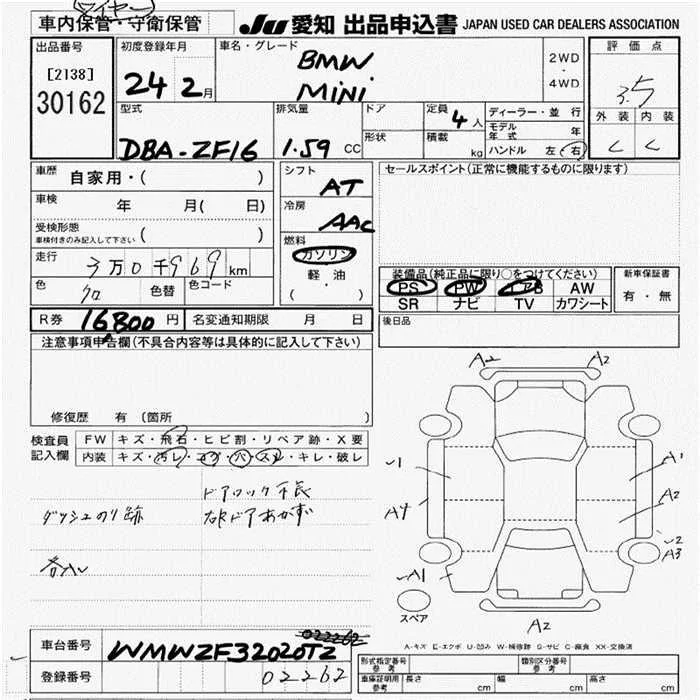 タイヤー
車内保管・守衛保管 JU 愛知 出品申込書 JAPAN USED CAR DEALERS ASSOCIATION
出品番号 初度登録年月 車名・グレード 評価点
[2138] BMW 2WD
30162 24 2月 MINI ・ 3.5
4WD
型式 排気量 ドア 定員 4人 ディーラー・並行 外装 内装
形状 積載 kg モデル年式 年
DBA-ZF16 1.59 CC ハンドル 左・右 C C
車歴 自家用・( ) シフト AT セールスポイント(正常に機能するものに限ります)
車検 年 月( 日) 冷房 AAC
受検形態
車検付きのみ記入して下さい ( )
燃料
走行 3万0千969km ガソリン
軽・油
( ・ )
色 クロ 色替 色コード
装備品(純正品に限り○をつけてください) 新車保証書
PS PW AB AW 有・無
SR ナビ TV カワシート
R券 16,800円 名変通知期限 月 日 後日品
注意事項申告欄(不具合内容等は具体的に記入して下さい)
修復歴 有 (箇所
検査員 FW キズ・飛石・ヒビ割・リペア跡・X要
記入欄 内装 キズ・汚レ・コゲ・穴・スレ・キレ・破レ
ドアロック不良
ダッシュのり跡 右Rドアあかず
A2 A2
1 A1
A4 A2
2
A3
A1
スペア
A2
A-キズ E-エクボ U-凹み W-補修跡 S-サビ C-腐食 XX-交換済
022262
車台番号 WMWZF32020TZ
登録番号 02262
型式指定番号 参考 類別区分番号 参考
車庫証明用 参考 長さ cm 幅 cm 高さ cm